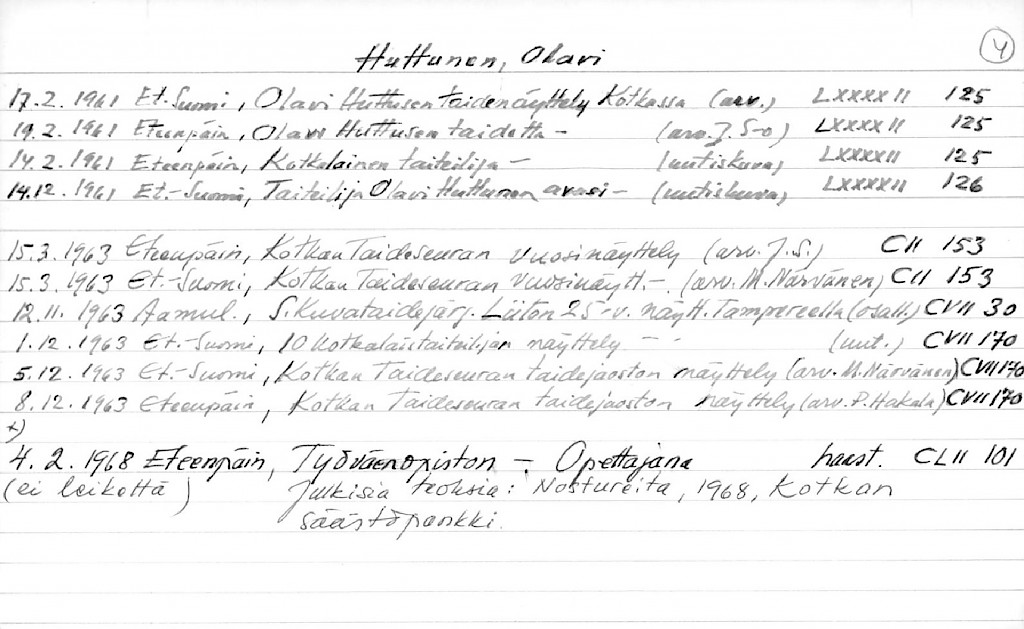 4
Huttunen, Olavi
17.2.1961 Et.Suomi, Olavi Huttusen taidenäyttely Kotkassa (arv.) LXXXXII 125
19.2.1961 Eteenpäin, Olavi Huttusen taidetta - (arv. J. S-o) LXXXXII 125
14.2.1961 Eteenpäin, Kotkalainen taiteilija - (uutiskuva) LXXXXII 125
14.12.1961 Et.-Suomi, Taiteilija Olavi Huttunen avasi - (uutiskuva) LXXXXII 126
15.3.1963 Eteenpäin, Kotkan Taideseuran vuosinäyttely (arv. J.S.) CII 153
15.3.1963 Et.-Suomi, Kotkan Taideseuran vuosinäytt.-. (arv. M. Närvänen) CII 153
12.11.1963 Aamul., S. Kuvataidejärj. Liiton 25-v. näytt. Tampereella (osall.) CVII 30
1.12.1963 Et.-Suomi, 10 kotkalaistaiteilijan näyttely - - (uut.) CVII 170
5.12.1963 Et.-Suomi, Kotkan Taideseuran taidejaoston näyttely (arv. M. Närvänen) CVII 170
8.12.1963 Eteenpäin, Kotkan Taideseuran taidejaoston näyttely (arv. P. Hakala) CVII 170
+)
4.2.1968 Eteenpäin, Työväenopiston - Opettajana haast. CLII 101
(ei leikettä) Julkisia teoksia: Nostureita, 1968, Kotkan
säästöpankki.